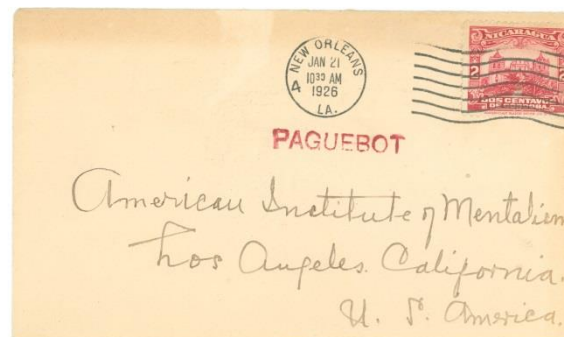 NEW ORLEANS
4
JAN 21
10 30 AM
1926
LA.
NICARAGUA
2
DOS CENTAVOS
DE CORDOBA
PAGUEBOT
American Institute of Mentalism
Los Angeles. California.
U. S. America.